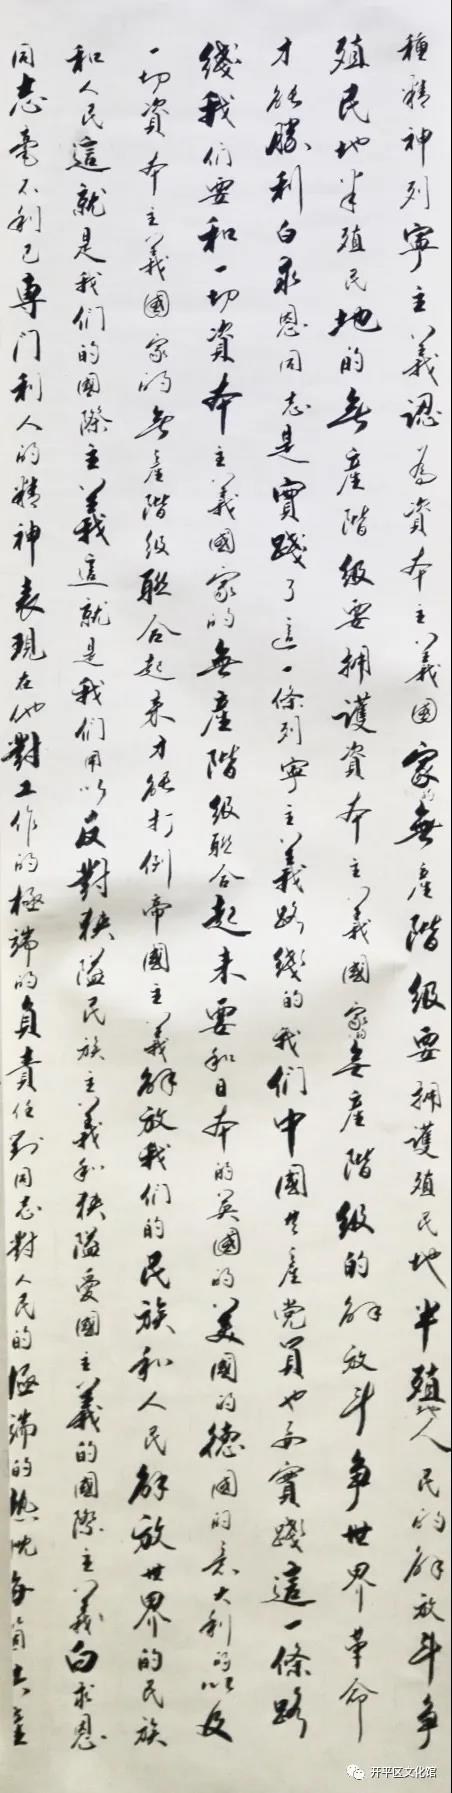 種精神列寧主義認為資本主義國家的無產階級要拥護殖民地半殖地人民的解放斗争
殖民地半殖民地的無產階級要拥護資本主義國家的無產階級的解放斗争世界革命
才能勝利白求恩同志是實踐了這一條列寧主義路綫的我们中國共產党員也要實踐這一條路
綫我们要和一切資本主義國家的無產階級聯合起来要和日本的英國的美國的德國的意大利的以及
一切資本主義國家的無產階級聯合起来才能打倒帝國主義解放我们的民族和人民解放世界的民族
和人民這就是我们的國際主義這就是我们用以反對狭隘民族主義和狭隘愛國主義的國際主義白求恩
同志毫不利己專门利人的精神表現在他對工作的極端的負責任對同志對人民的極端的热忱每個共產
开平区文化馆